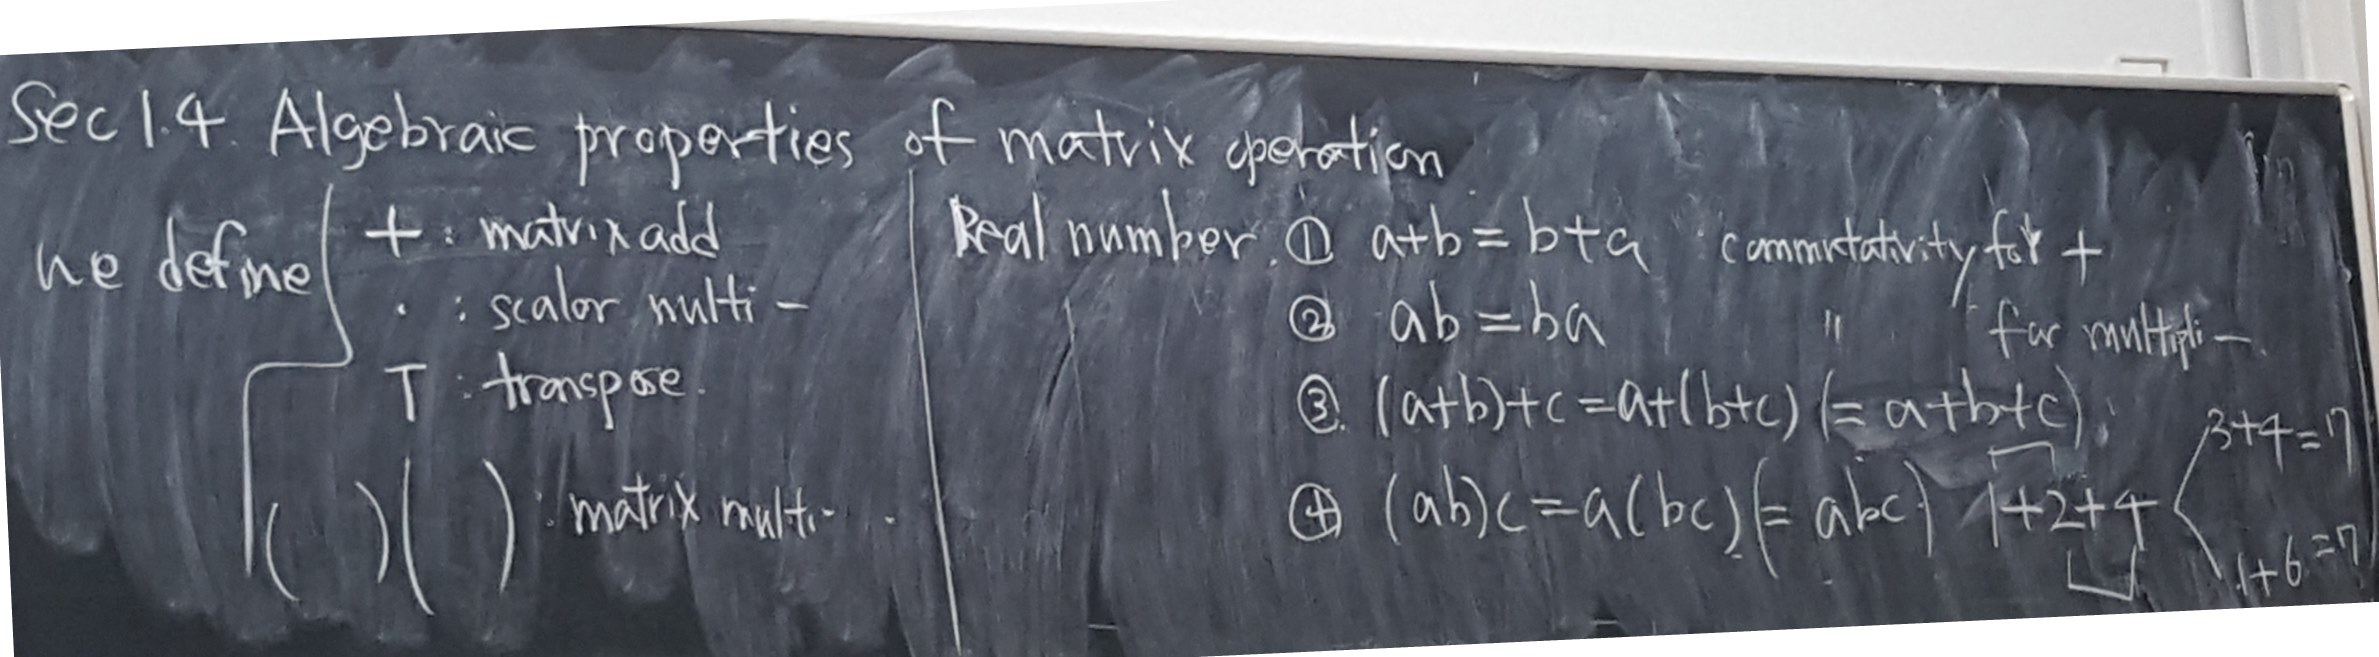 Sec 1.4. Algebraic properties of matrix operation
we define
+ : matrix add
· : scalor multi -
T : transpose.
( )( ) : matrix multi- .
Real number. ① a+b=b+a : commutativity for +
② ab=ba " for multipli-.
③. (a+b)+c=a+(b+c) (= a+b+c)
④ (ab)c=a(bc) (= abc) 1+2+4
3+4=7
1+6=7